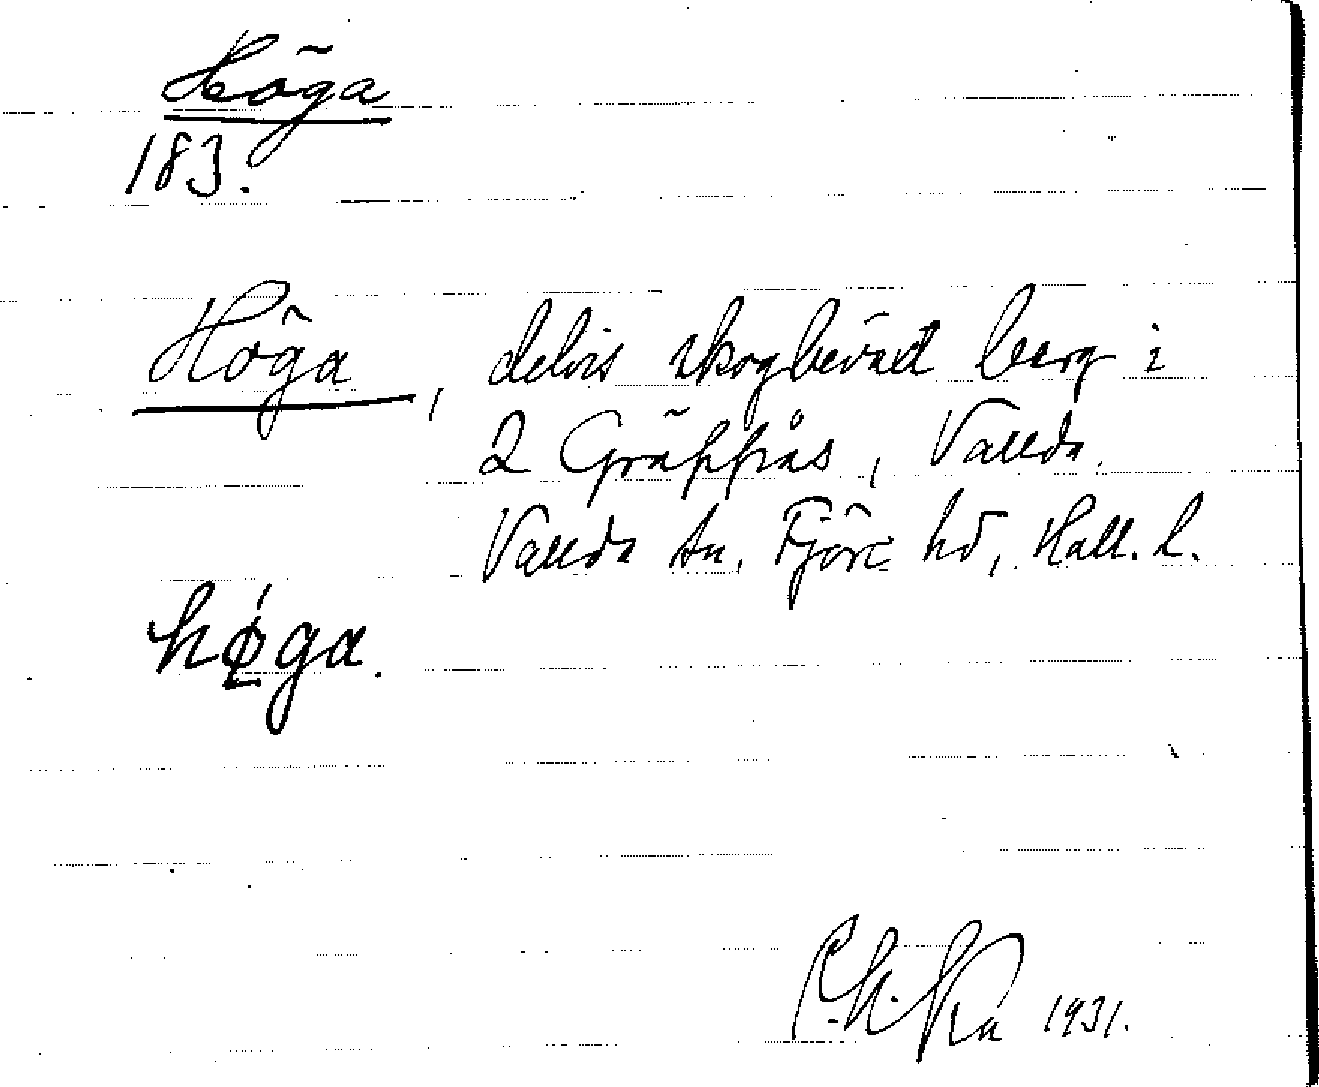 Höga
183.
Höga, delvis skogbeväxt berg i
2 Gräppås, Vallda.
Vallda sn. Fjäre hd, Hall. l.
høga.
1931.